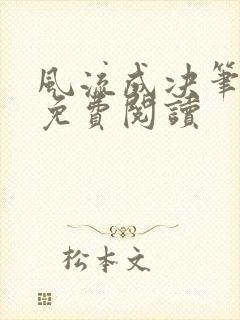 風流成决筆
免費閱讀
松本文